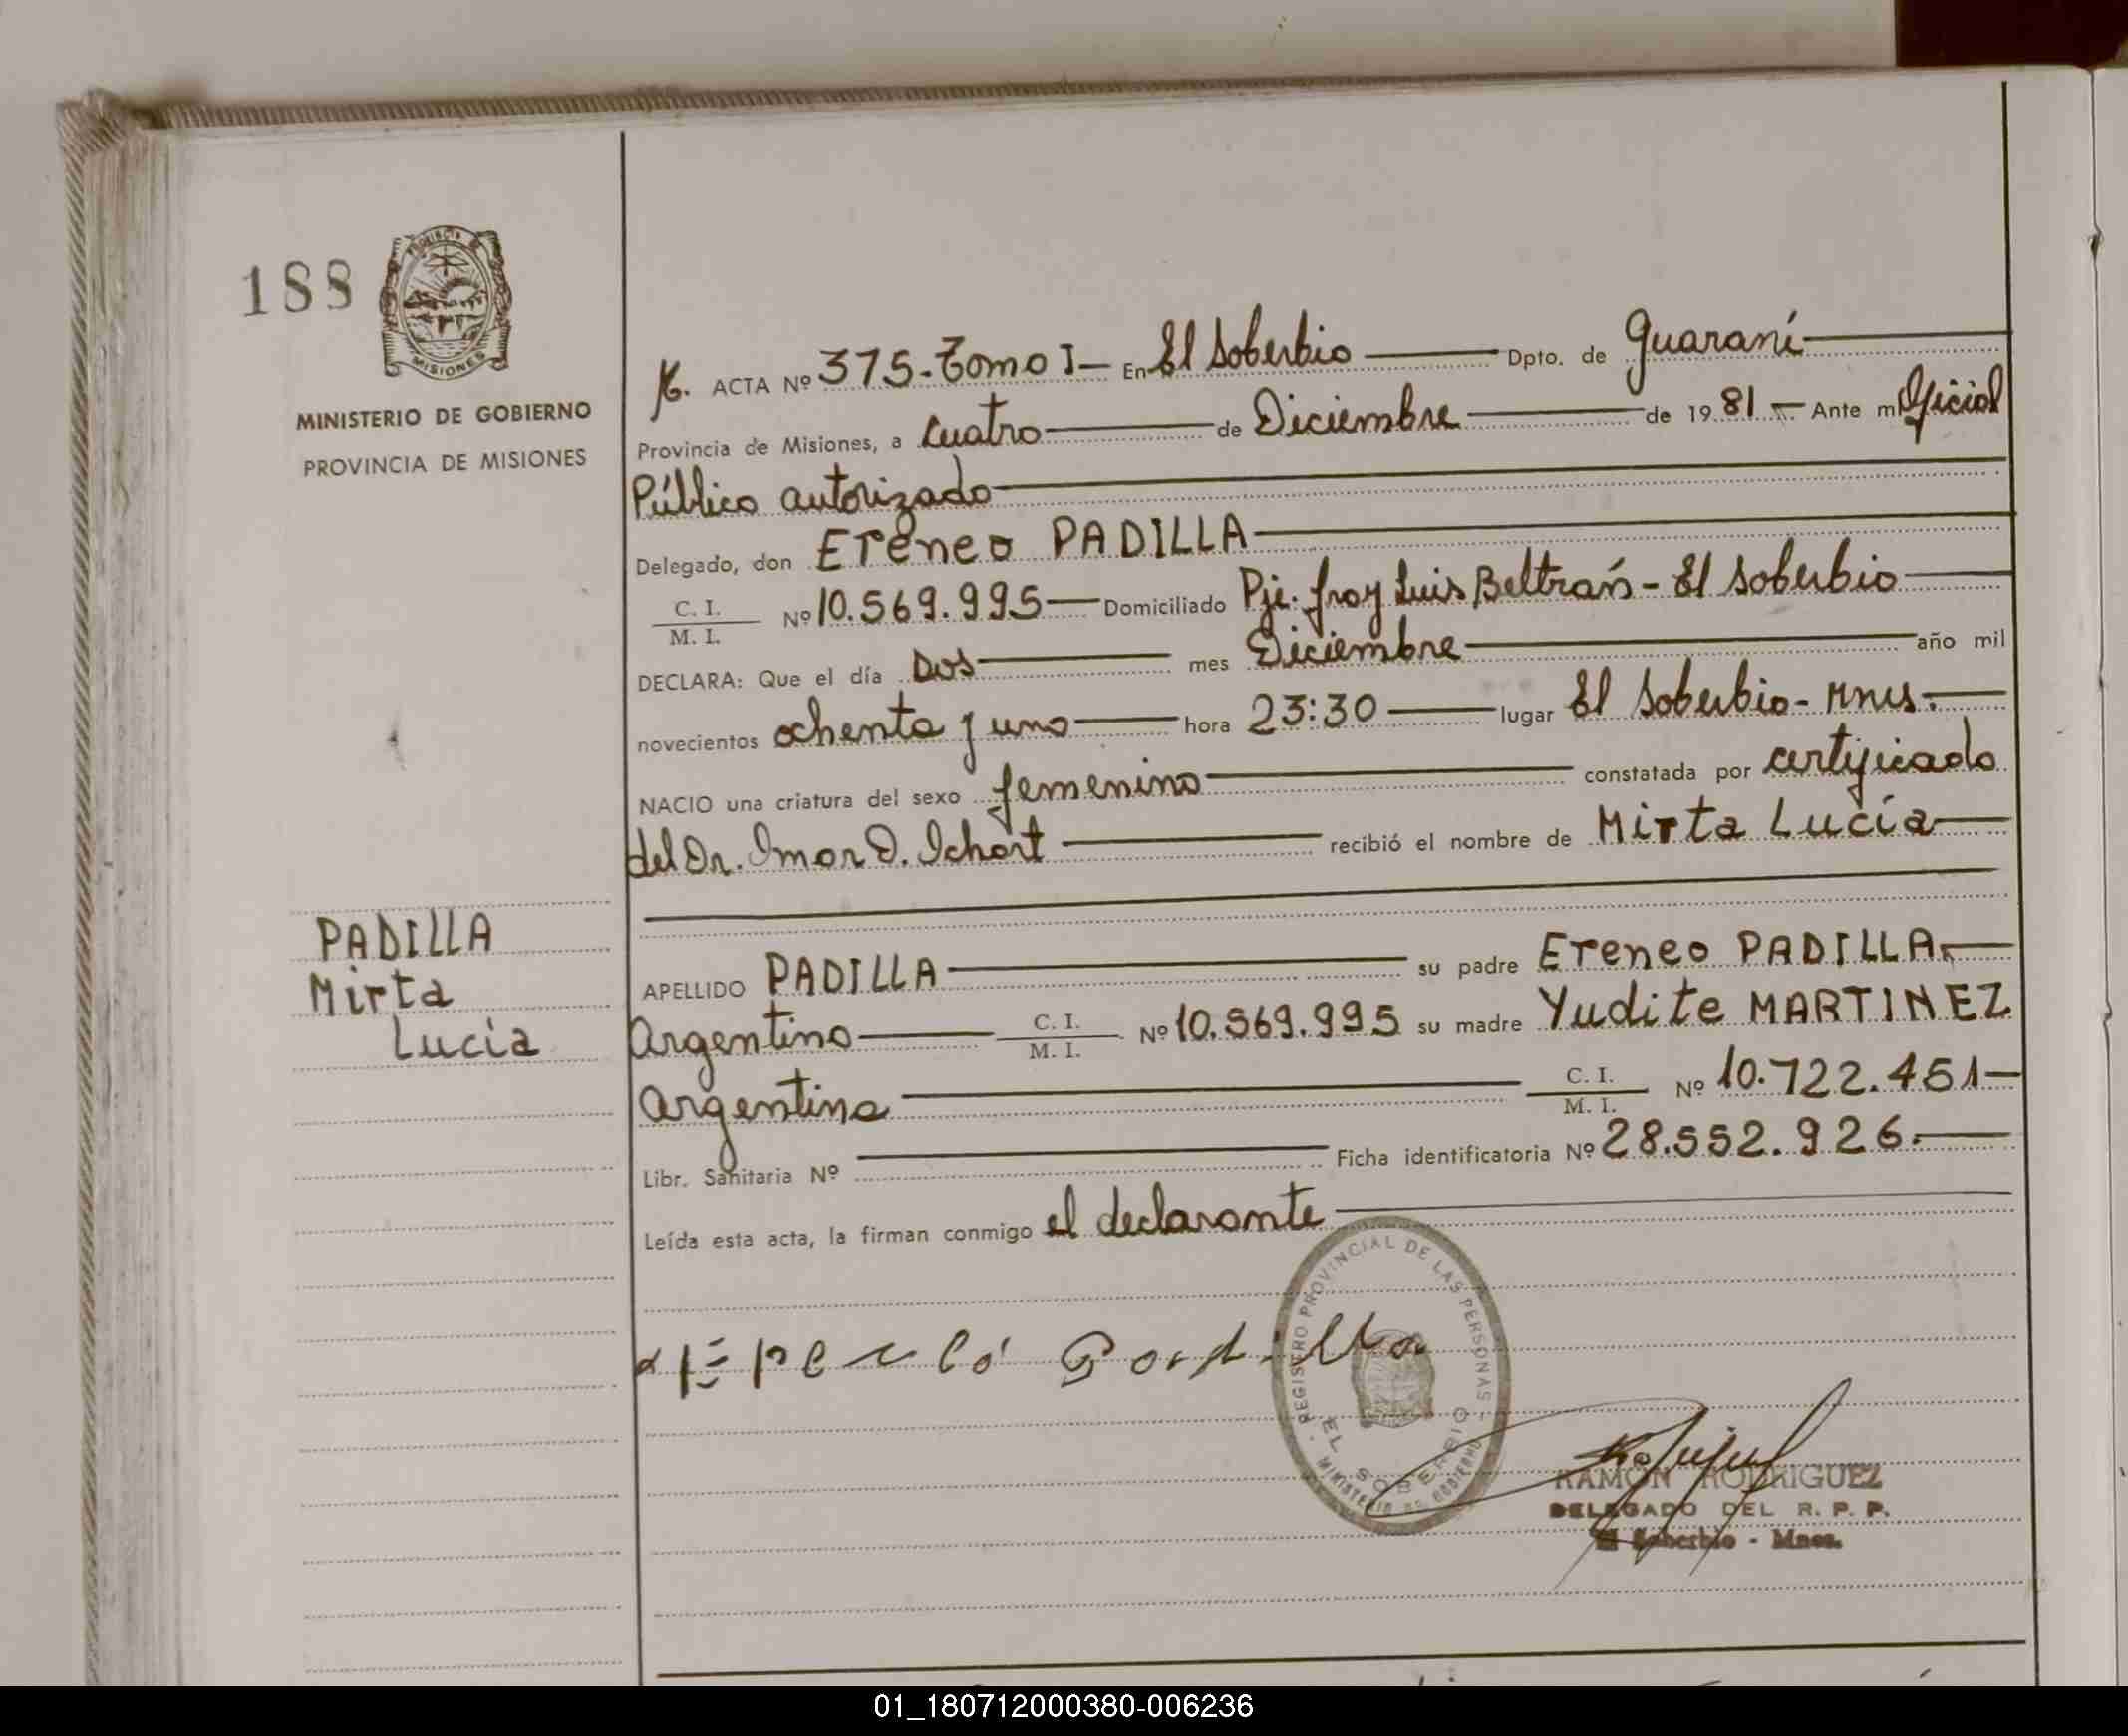 188
PROVINCIA DE
MISIONES
MINISTERIO DE GOBIERNO
PROVINCIA DE MISIONES
ACTA Nº 375-Tomo I- En El Soberbio Dpto. de Guaraní
Provincia de Misiones, a cuatro de Diciembre de 1981 Ante mí Oficial
Público autorizado
Delegado, don Ereneo PADILLA
C. I. / M. I. Nº 10.569.995 Domiciliado Pje. Fray Luis Beltrán - El Soberbio
DECLARA: Que el día Dos mes Diciembre año mil
novecientos ochenta y uno hora 23:30 lugar El Soberbio - Mnes.
NACIO una criatura del sexo femenino constatada por certificado
del Dr. Imar D. Ichart recibió el nombre de Mirta Lucía
PADILLA
Mirta
Lucía
APELLIDO PADILLA su padre Ereneo PADILLA
Argentino C. I. / M. I. Nº 10.569.995 su madre Yudite MARTINEZ
Argentina C. I. / M. I. Nº 10.722.451
Libr. Sanitaria Nº Ficha identificatoria Nº 28.552.926.
Leída esta acta, la firman conmigo el declarante
REGISTRO PROVINCIAL DE LAS PERSONAS
EL SOBERBIO
MINISTERIO DE GOBIERNO
RAMON RODRIGUEZ
DELEGADO DEL R. P. P.
El Soberbio - Mnes.
01_180712000380-006236